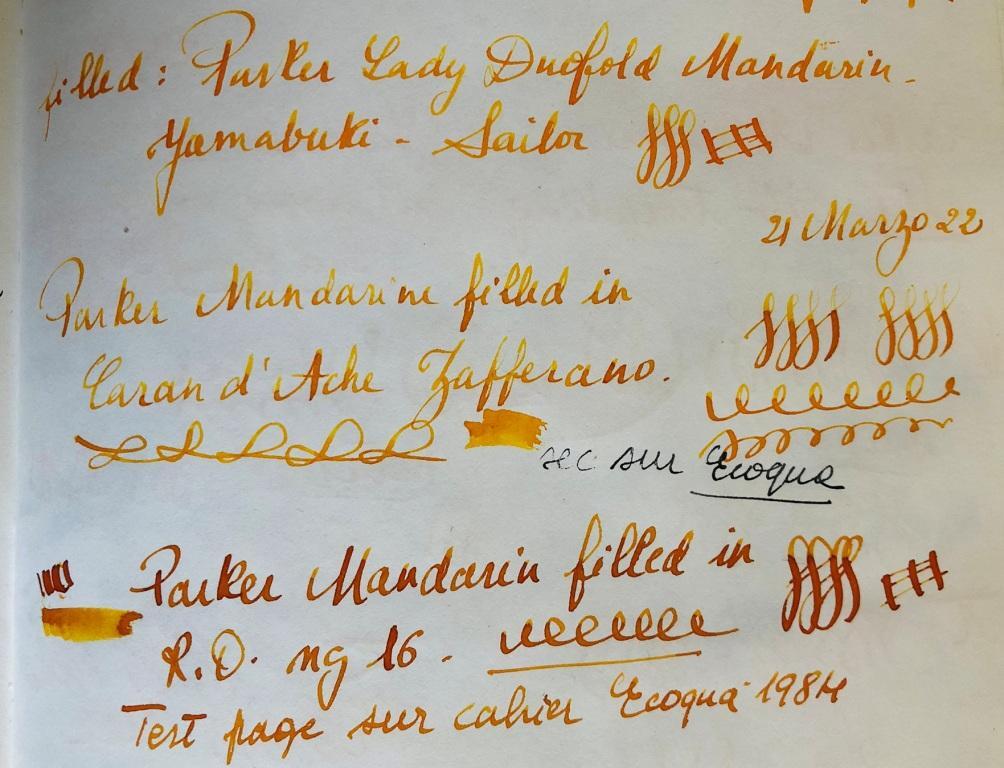 filled: Parker Lady Duofold Mandarin.
Yamabuki - Sailor
21 Marzo 22
Parker Mandarine filled in
Caran d'Ache Zafferano.
sec sur Ecoqua
Parker Mandarin filled in
R.O. ng 16.
Test page sur cahier Ecoquà 1984